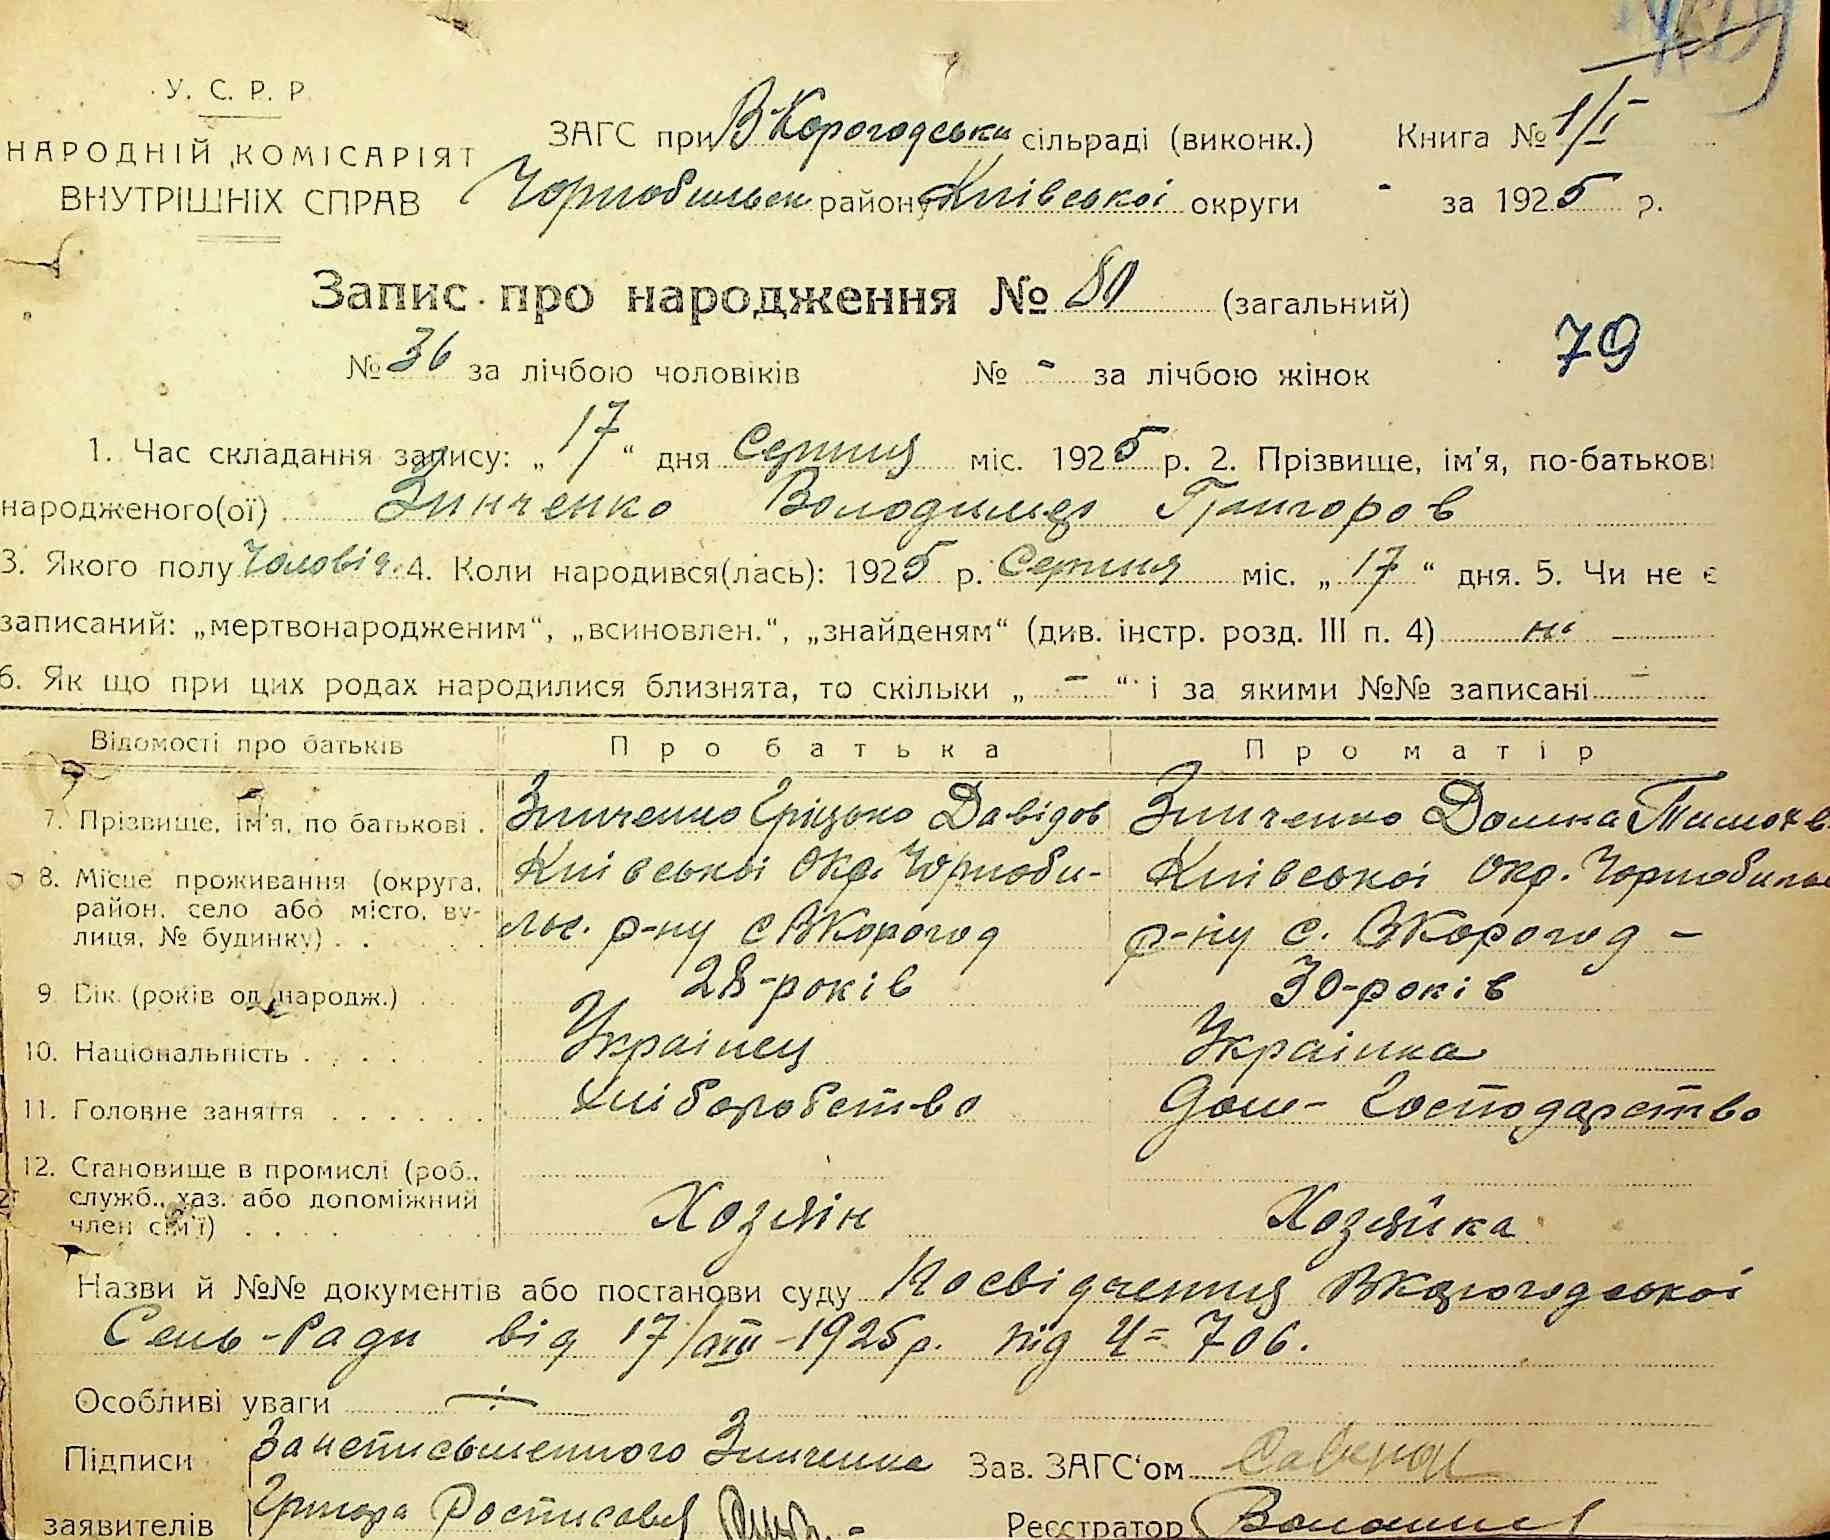 У. С. Р. Р
НАРОДНІЙ КОМІСАРІЯТ
ВНУТРІШНІХ СПРАВ
ЗАГС при ВКорогодськи сільраді (виконк.) Книга № 1/I
Чорнобильськ району Київської округи - за 1925 р.
Запис про народження № 80 (загальний)
79
№ 36 за лічбою чоловіків № - за лічбою жінок
1. Час складання запису: „17“ дня Серпня міс. 1925 р. 2. Прізвище, ім'я, по-батькові
народженого(ої) Зинченко Володимер Григоров
3. Якого полу Чоловіч. 4. Коли народився(лась): 1925 р. Серпня міс. „17“ дня. 5. Чи не є
записаний: „мертвонародженим“, „всиновлен.“, „знайденям“ (див. інстр. розд. III п. 4) ні
6. Як що при цих родах народилися близнята, то скільки „ - “ і за якими №№ записані -
Відомості про батьків Про батька Про матір
7. Прізвище, ім'я, по батькові . Зинченко Гріцько Давідов Зинченко Домна Тимохв
8. Місце проживання (округа, Київської Окр. Чорноби- Київської Окр. Чорнобильс
район, село або місто, ву- льс. р-ну с ВКорогод р-ну с. ВКорогод -
лиця, № будинку) . .
9. Вік (років од народж.) . . 28-років 30-років
10. Національність . . . . . Українец Українка
11. Головне заняття . . . . . . Хліборобство Дом- Господарство
12. Становище в промислі (роб.,
служб., хаз. або допоміжний Хозяін Хозяйка
член сім'ї) . . . .
Назви й №№ документів або постанови суду Посвідчення ВКорогодської
Сель-Ради від 17/VIII-1925р. під Ч= 706.
Особливі уваги
Підписи За неписьменного Зинченка Зав. ЗАГС'ом
заявителів Григора Росписався Реєстратор